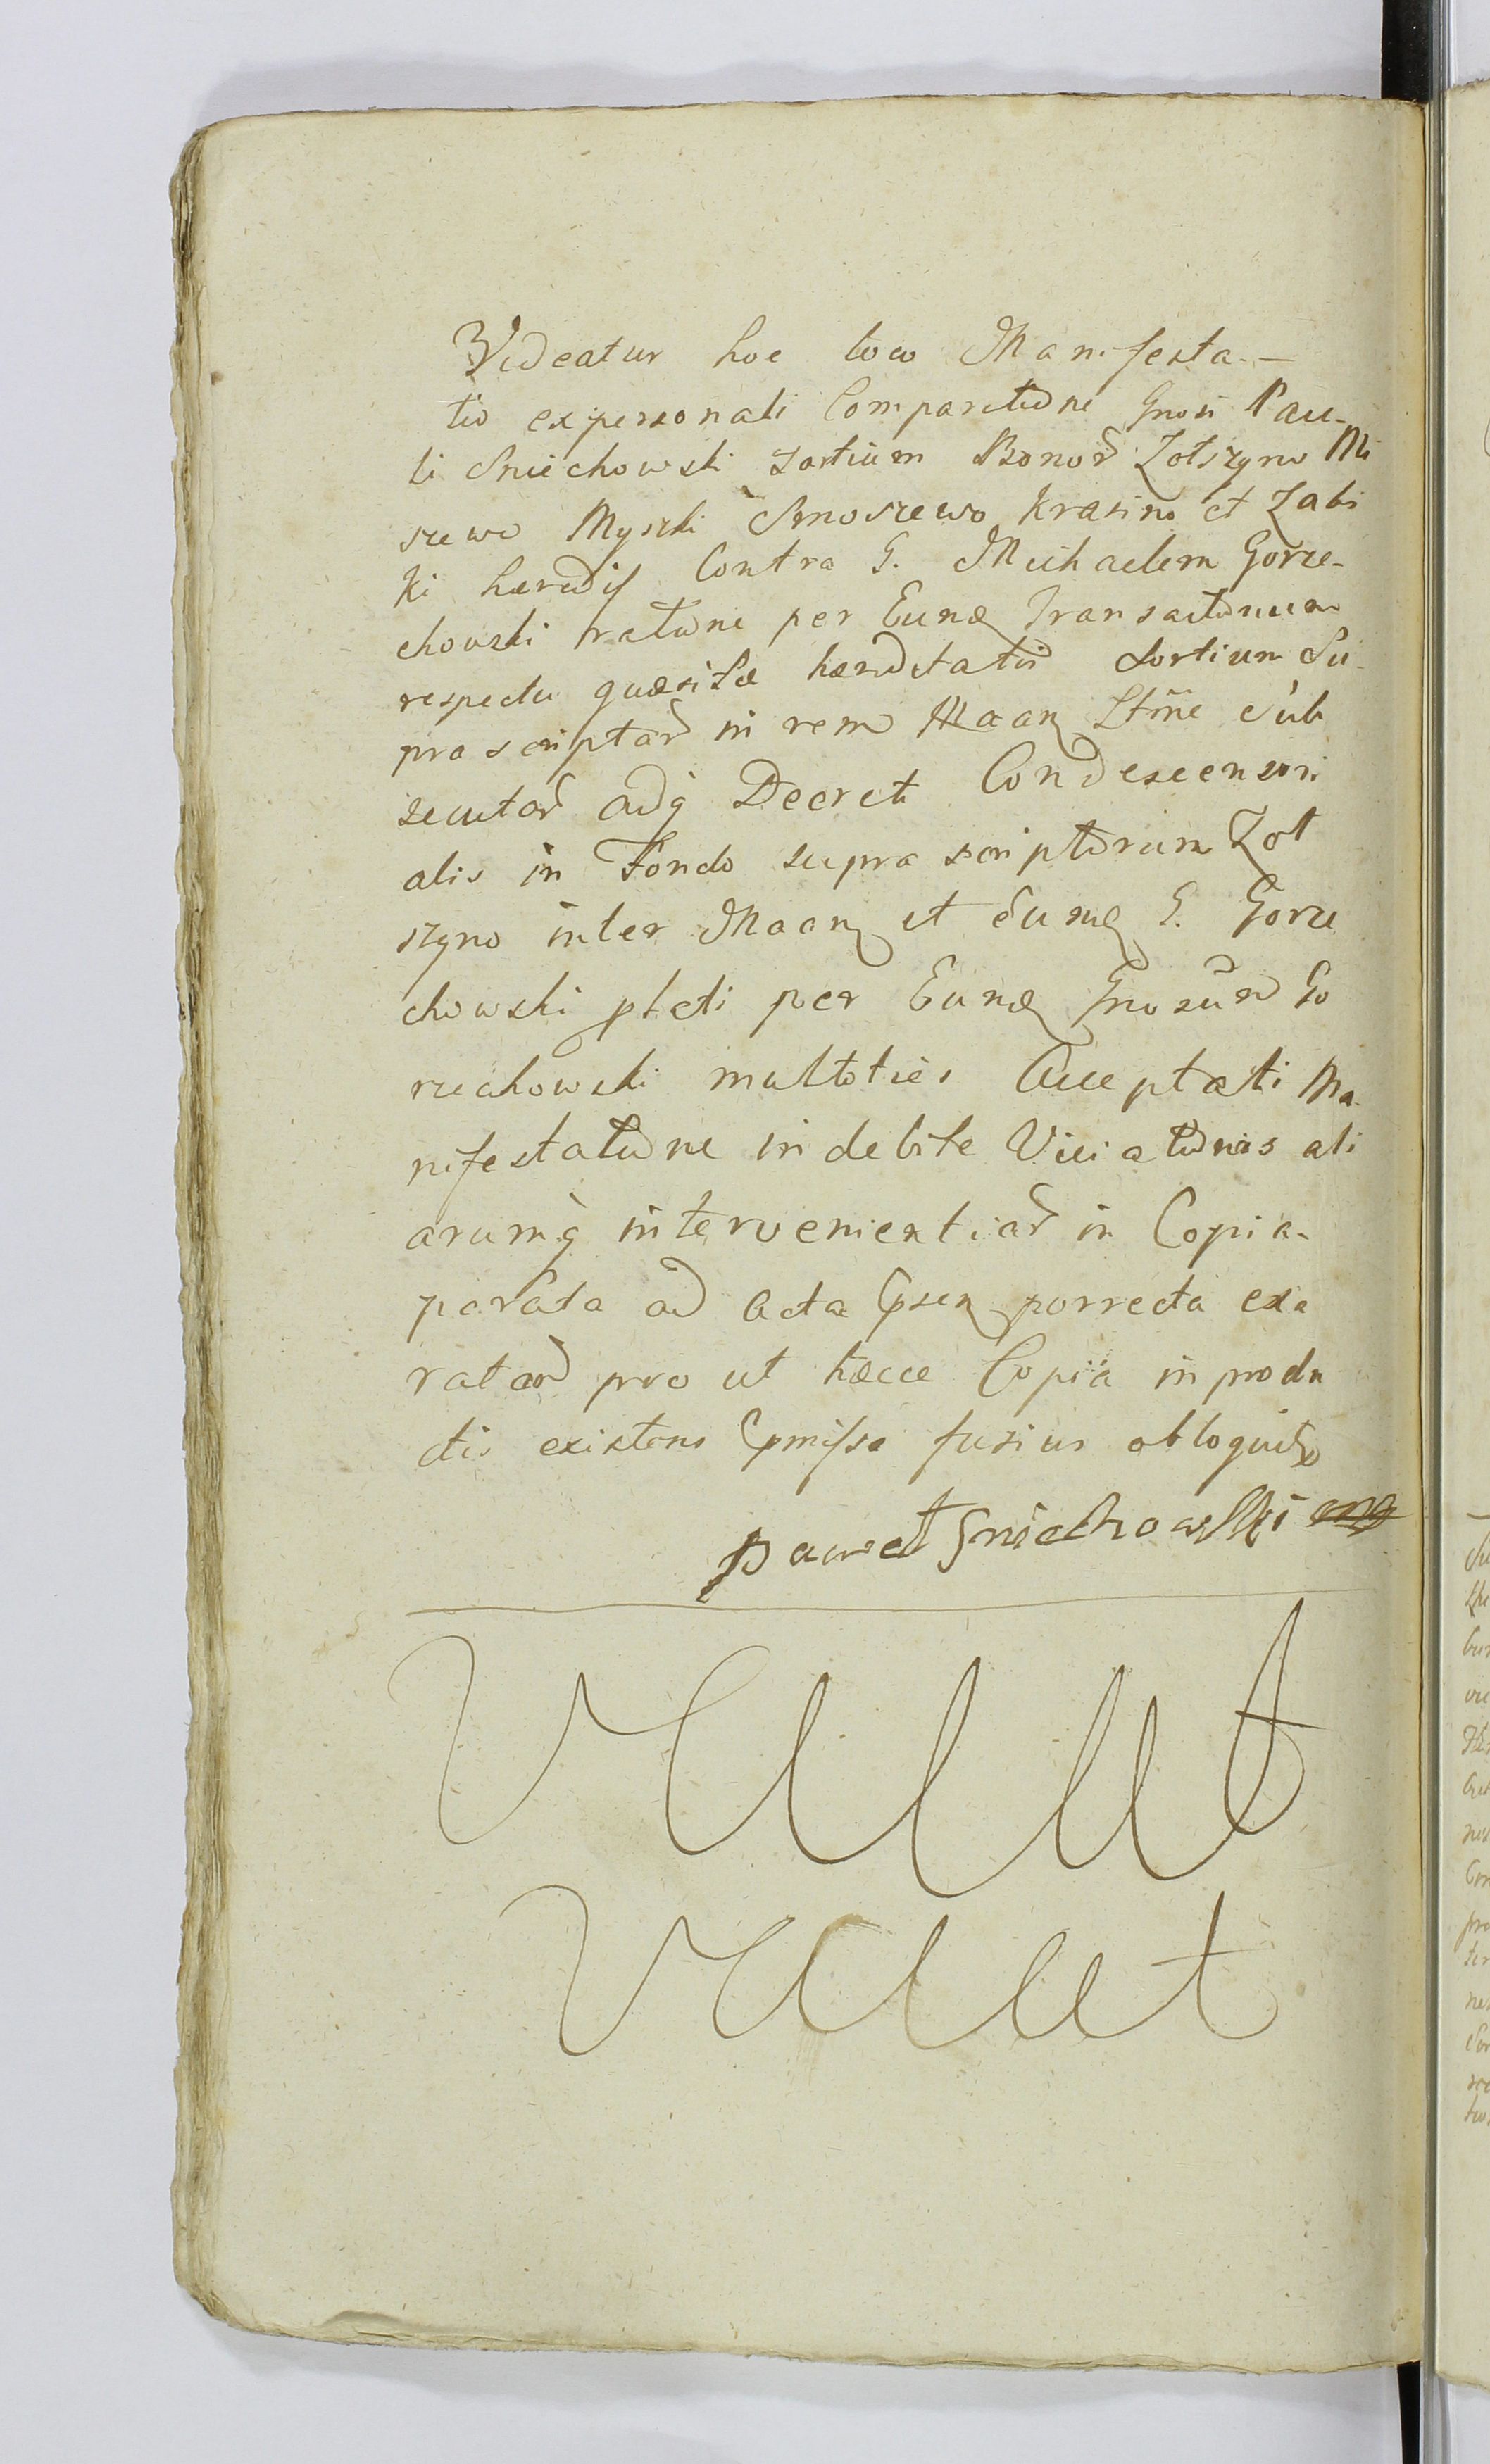 Videatur hoc loco Manifesta-
tio ex personali Comparitione Gnosi Pau-
li Sniechowski sortium Bonor Zołszyno Mi
szewo Myszki Smoszewo Krasino et Zabi
ki hæredis Contra G. Michaelem Gorze-
chowski ratione per Eundem Transactionum
respectu quæsitæ hæreditatis Sortium Su-
prascriptar in rem Maan Sub
secutar adq Decreti Condescensori
alis in Fondo supra scriptorum Zoł
szyno inter Maan et Eund G. Gorze
chowski per Eund Gnosum Go
rzechowski multoties Acceptati Ma-
nifestatione indebite Viciationis ali
arumq intervenientiar in Copia
parata ad Acta porrecta exa
ratar pro ut hæcce Copia in produ
ctis existens fusius obloquitr
Paweł Sniechowski mp